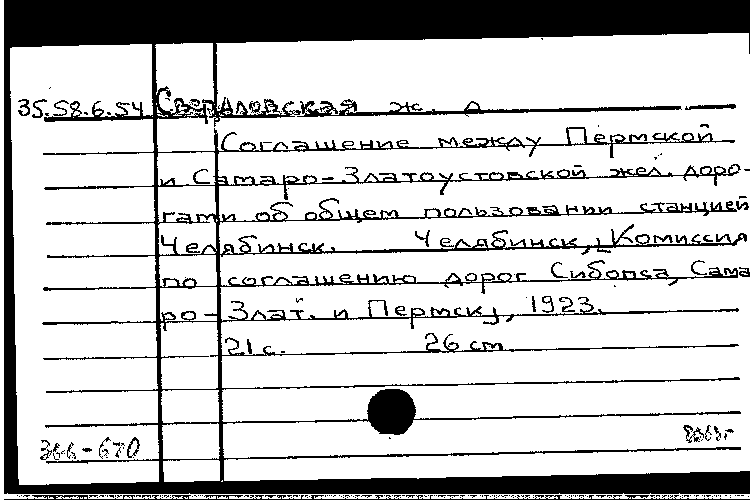 35.58.6.54 Свердловская ж. д
Соглашение между Пермской
и Самаро-Златоустовской жел. доро-
гами об общем пользовании станцией
Челябинск. Челябинск, Комиссия
по соглашению дорог Сибопса, Сама
ро-Злат. и Пермск], 1923.
21 с. 26 cm
366-670